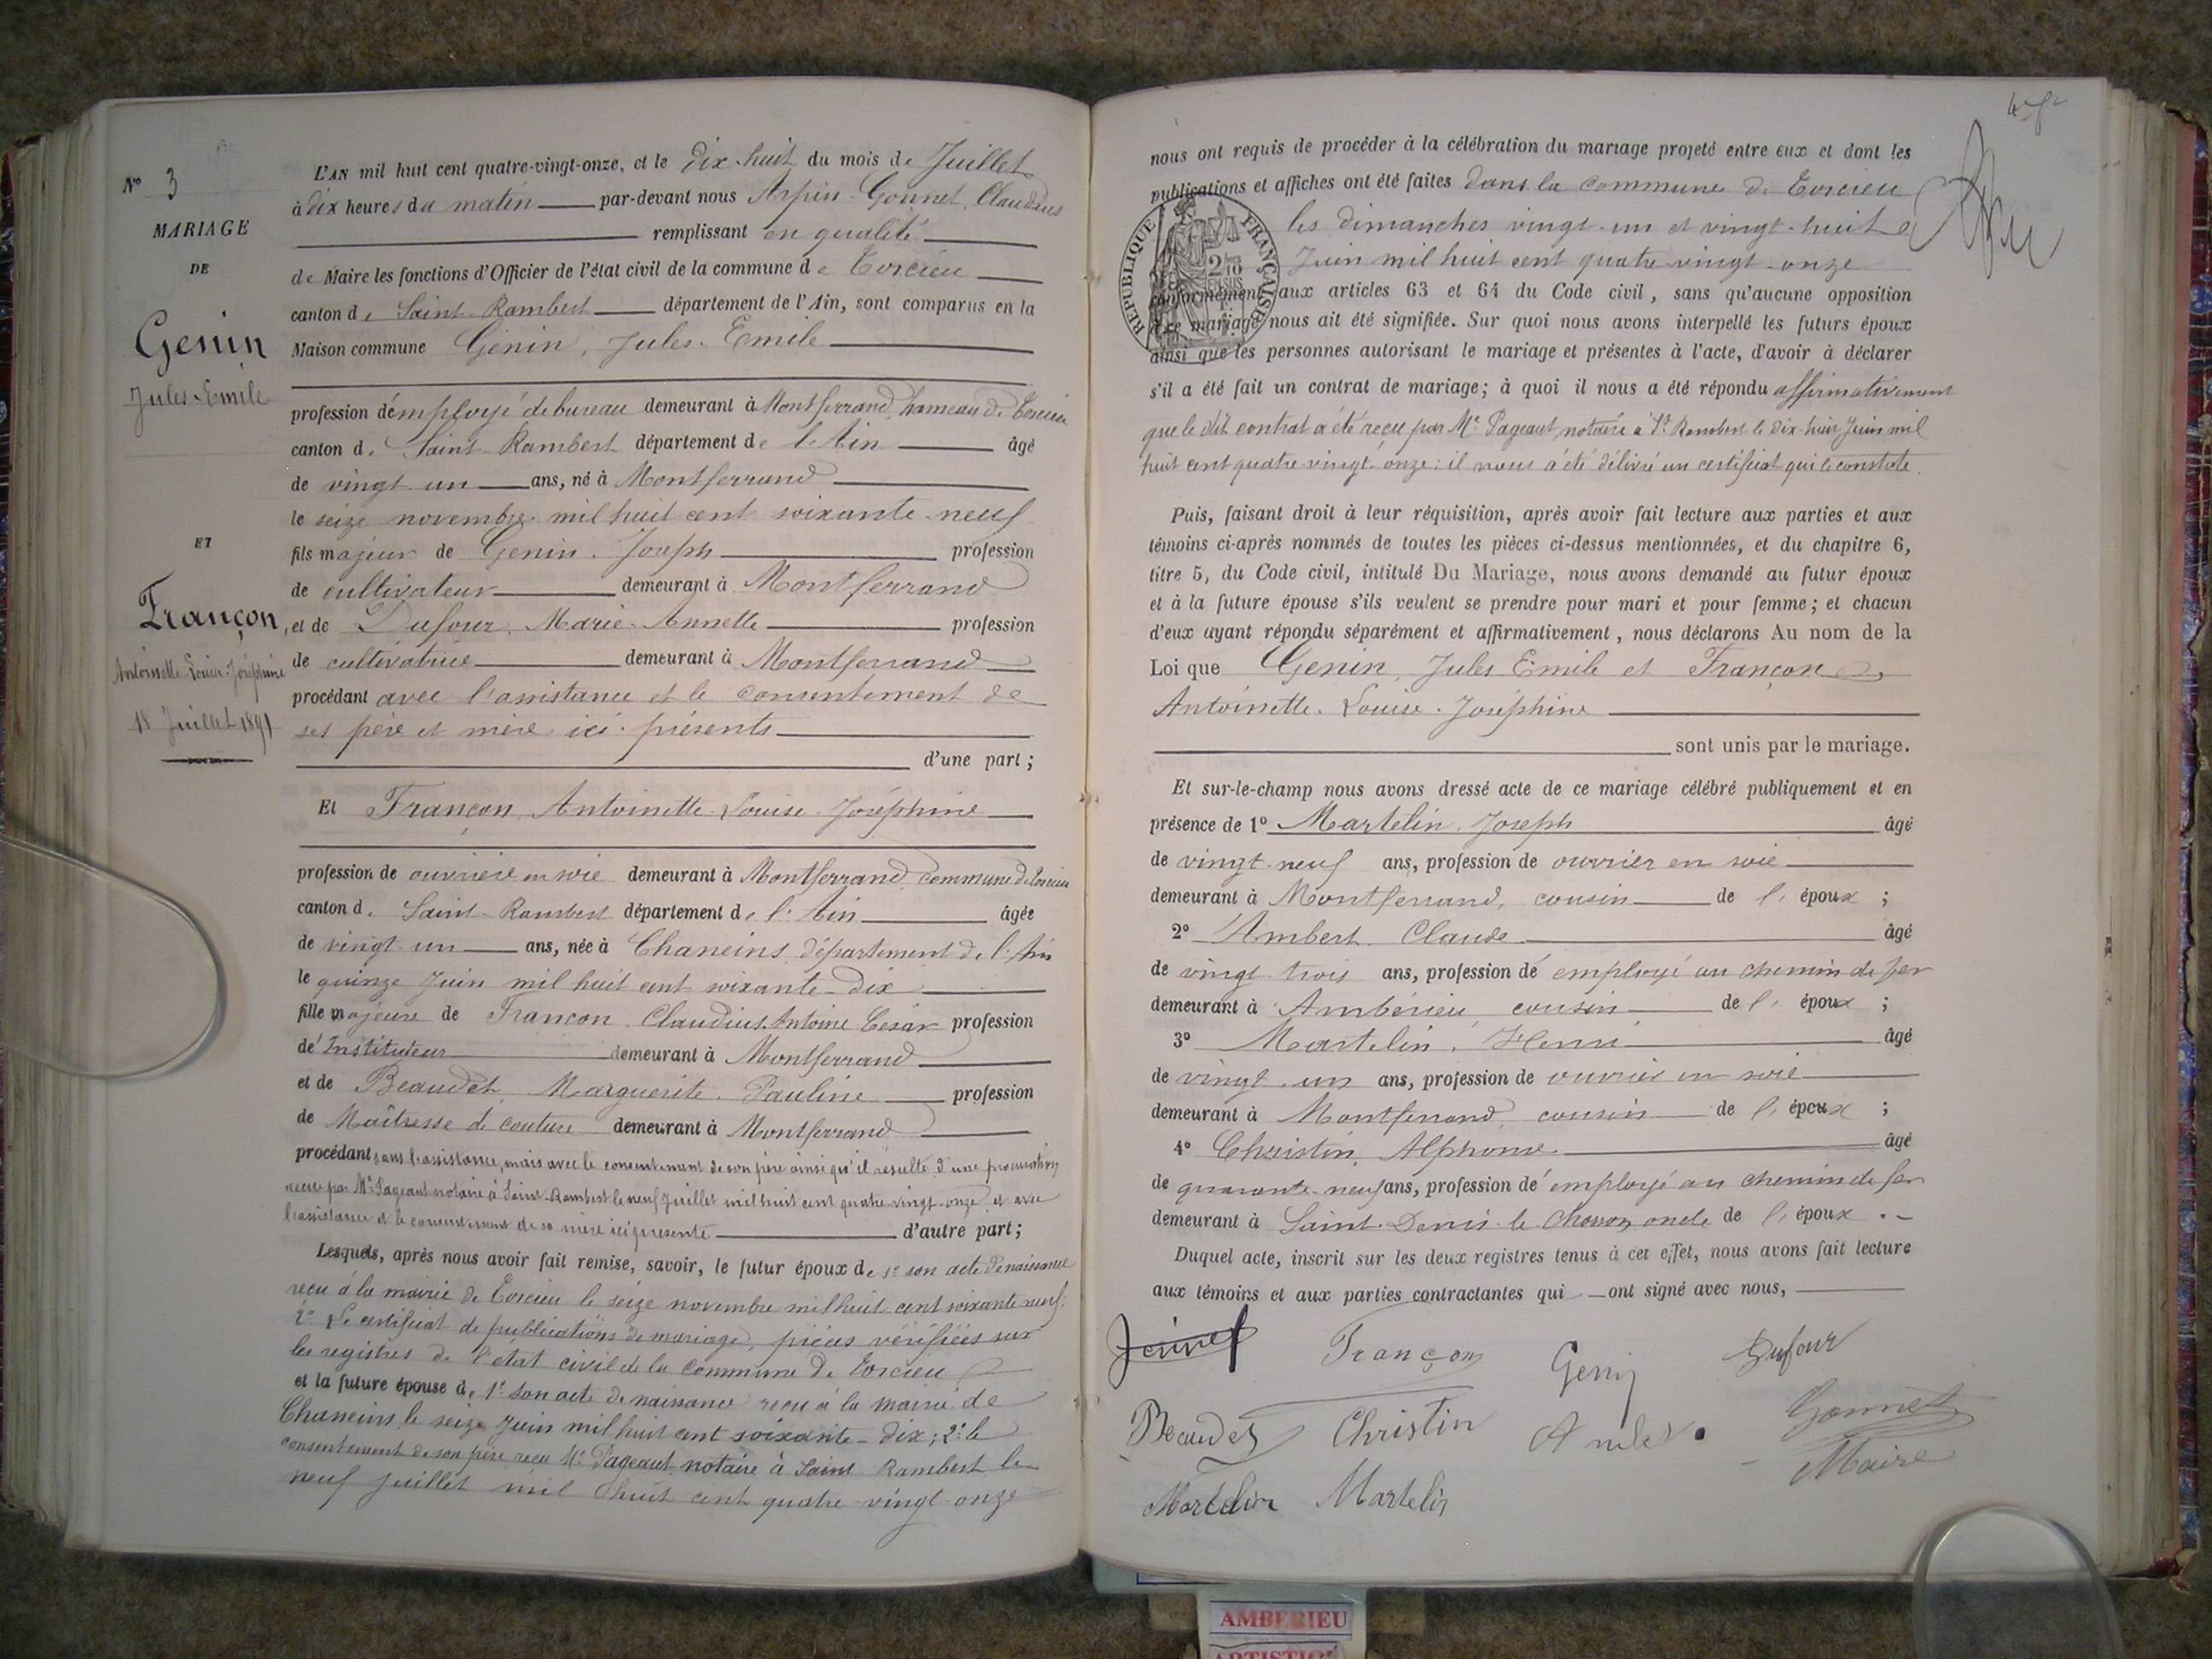 N° 3
MARIAGE
DE
Genin
Jules-Emile
ET
Françon
Antoinette-Louise-Joséphine
18 Juillet 1891
L'AN mil huit cent quatre-vingt-onze, et le dix-huit du mois de Juillet
à dix heures du matin par-devant nous Arpin-Gonnet, Claudius
remplissant en qualité
de Maire les fonctions d'Officier de l'état civil de la commune de Torcieu
canton de Saint-Rambert département de l'Ain, sont comparus en la
Maison commune Genin, Jules-Emile
profession d'employé de bureau demeurant à Montferrand, hameau de Torcieu
canton de Saint-Rambert département de l'Ain âgé
de vingt-un ans, né à Montferrand
le seize novembre mil huit cent soixante-neuf
fils majeur de Genin, Joseph profession
de cultivateur demeurant à Montferrand
et de Dufour, Marie-Annette profession
de cultivatrice demeurant à Montferrand
procédant avec l'assistance et le consentement de
ses père et mère ici présents
d'une part ;
Et Françon, Antoinette-Louise-Joséphine
profession de ouvrière en soie demeurant à Montferrand, commune de Torcieu
canton de Saint-Rambert département de l'Ain âgée
de vingt-un ans, née à Chaneins, département de l'Ain
le quinze Juin mil huit cent soixante-dix
fille majeure de Françon Claudius Antoine César profession
de Instituteur demeurant à Montferrand
et de Beaudet, Marguerite Pauline profession
de Maîtresse de couture demeurant à Montferrand
procédant sans l'assistance, mais avec le consentement de son père ainsi qu'il résulte d'une procuration
reçue par Me Pageaut notaire à Saint-Rambert le neuf Juillet mil huit cent quatre-vingt-onze, et avec
l'assistance et le consentement de sa mère ici présente d'autre part ;
Lesquels, après nous avoir fait remise, savoir, le futur époux de 1° son acte de naissance
reçu à la mairie de Torcieu le seize novembre mil huit cent soixante neuf ;
2° Le certificat de publications de mariage, pièces vérifiées sur
les registres de l'état civil de la commune de Torcieu
et la future épouse de 1° son acte de naissance reçu à la mairie de
Chaneins, le seize Juin mil huit cent soixante-dix ; 2° le
consentement de son père reçu Me Pageaut notaire à Saint Rambert le
neuf juillet mil huit cent quatre-vingt-onze
nous ont requis de procéder à la célébration du mariage projeté entre eux et dont les
publications et affiches ont été faites dans la commune de Torcieu
les dimanches vingt-un et vingt-huit
Juin mil huit cent quatre-vingt-onze
RÉPUBLIQUE FRANÇAISE
conformément aux articles 63 et 64 du Code civil, sans qu'aucune opposition
à ce mariage nous ait été signifiée. Sur quoi nous avons interpellé les futurs époux
ainsi que les personnes autorisant le mariage et présentes à l'acte, d'avoir à déclarer
s'il a été fait un contrat de mariage ; à quoi il nous a été répondu affirmativement
que le dit contrat a été reçu par Me Pageaut, notaire à St Rambert le dix-huit Juin mil
huit cent quatre-vingt-onze ; il nous a été délivré un certificat qui le constate.
Puis, faisant droit à leur réquisition, après avoir fait lecture aux parties et aux
témoins ci-après nommés de toutes les pièces ci-dessus mentionnées, et du chapitre 6,
titre 5, du Code civil, intitulé Du Mariage, nous avons demandé au futur époux
et à la future épouse s'ils veulent se prendre pour mari et pour femme ; et chacun
d'eux ayant répondu séparément et affirmativement, nous déclarons Au nom de la
Loi que Genin, Jules Emile et Françon
Antoinette-Louise-Joséphine
sont unis par le mariage.
Et sur-le-champ nous avons dressé acte de ce mariage célébré publiquement et en
présence de 1° Martelin, Joseph âgé
de vingt-neuf ans, profession de ouvrier en soie
demeurant à Montferrand, cousin de l'époux ;
2° Ambert, Claude âgé
de vingt-trois ans, profession de employé au chemin de fer
demeurant à Ambérieu, cousin de l'époux ;
3° Martelin, Henri âgé
de vingt-un ans, profession de ouvrier en soie
demeurant à Montferrand, cousin de l'époux ;
4° Christin, Alphonse âgé
de quarante-neuf ans, profession de employé au chemin de fer
demeurant à Saint-Denis-le-Chosson, oncle de l'époux.
Duquel acte, inscrit sur les deux registres tenus à cet effet, nous avons fait lecture
aux témoins et aux parties contractantes qui ont signé avec nous,
Françon Genin Dufour
Beaudet Christin Gonnet
Maire
Martelin Martelin
AMBERIEU
ARTISTIQ